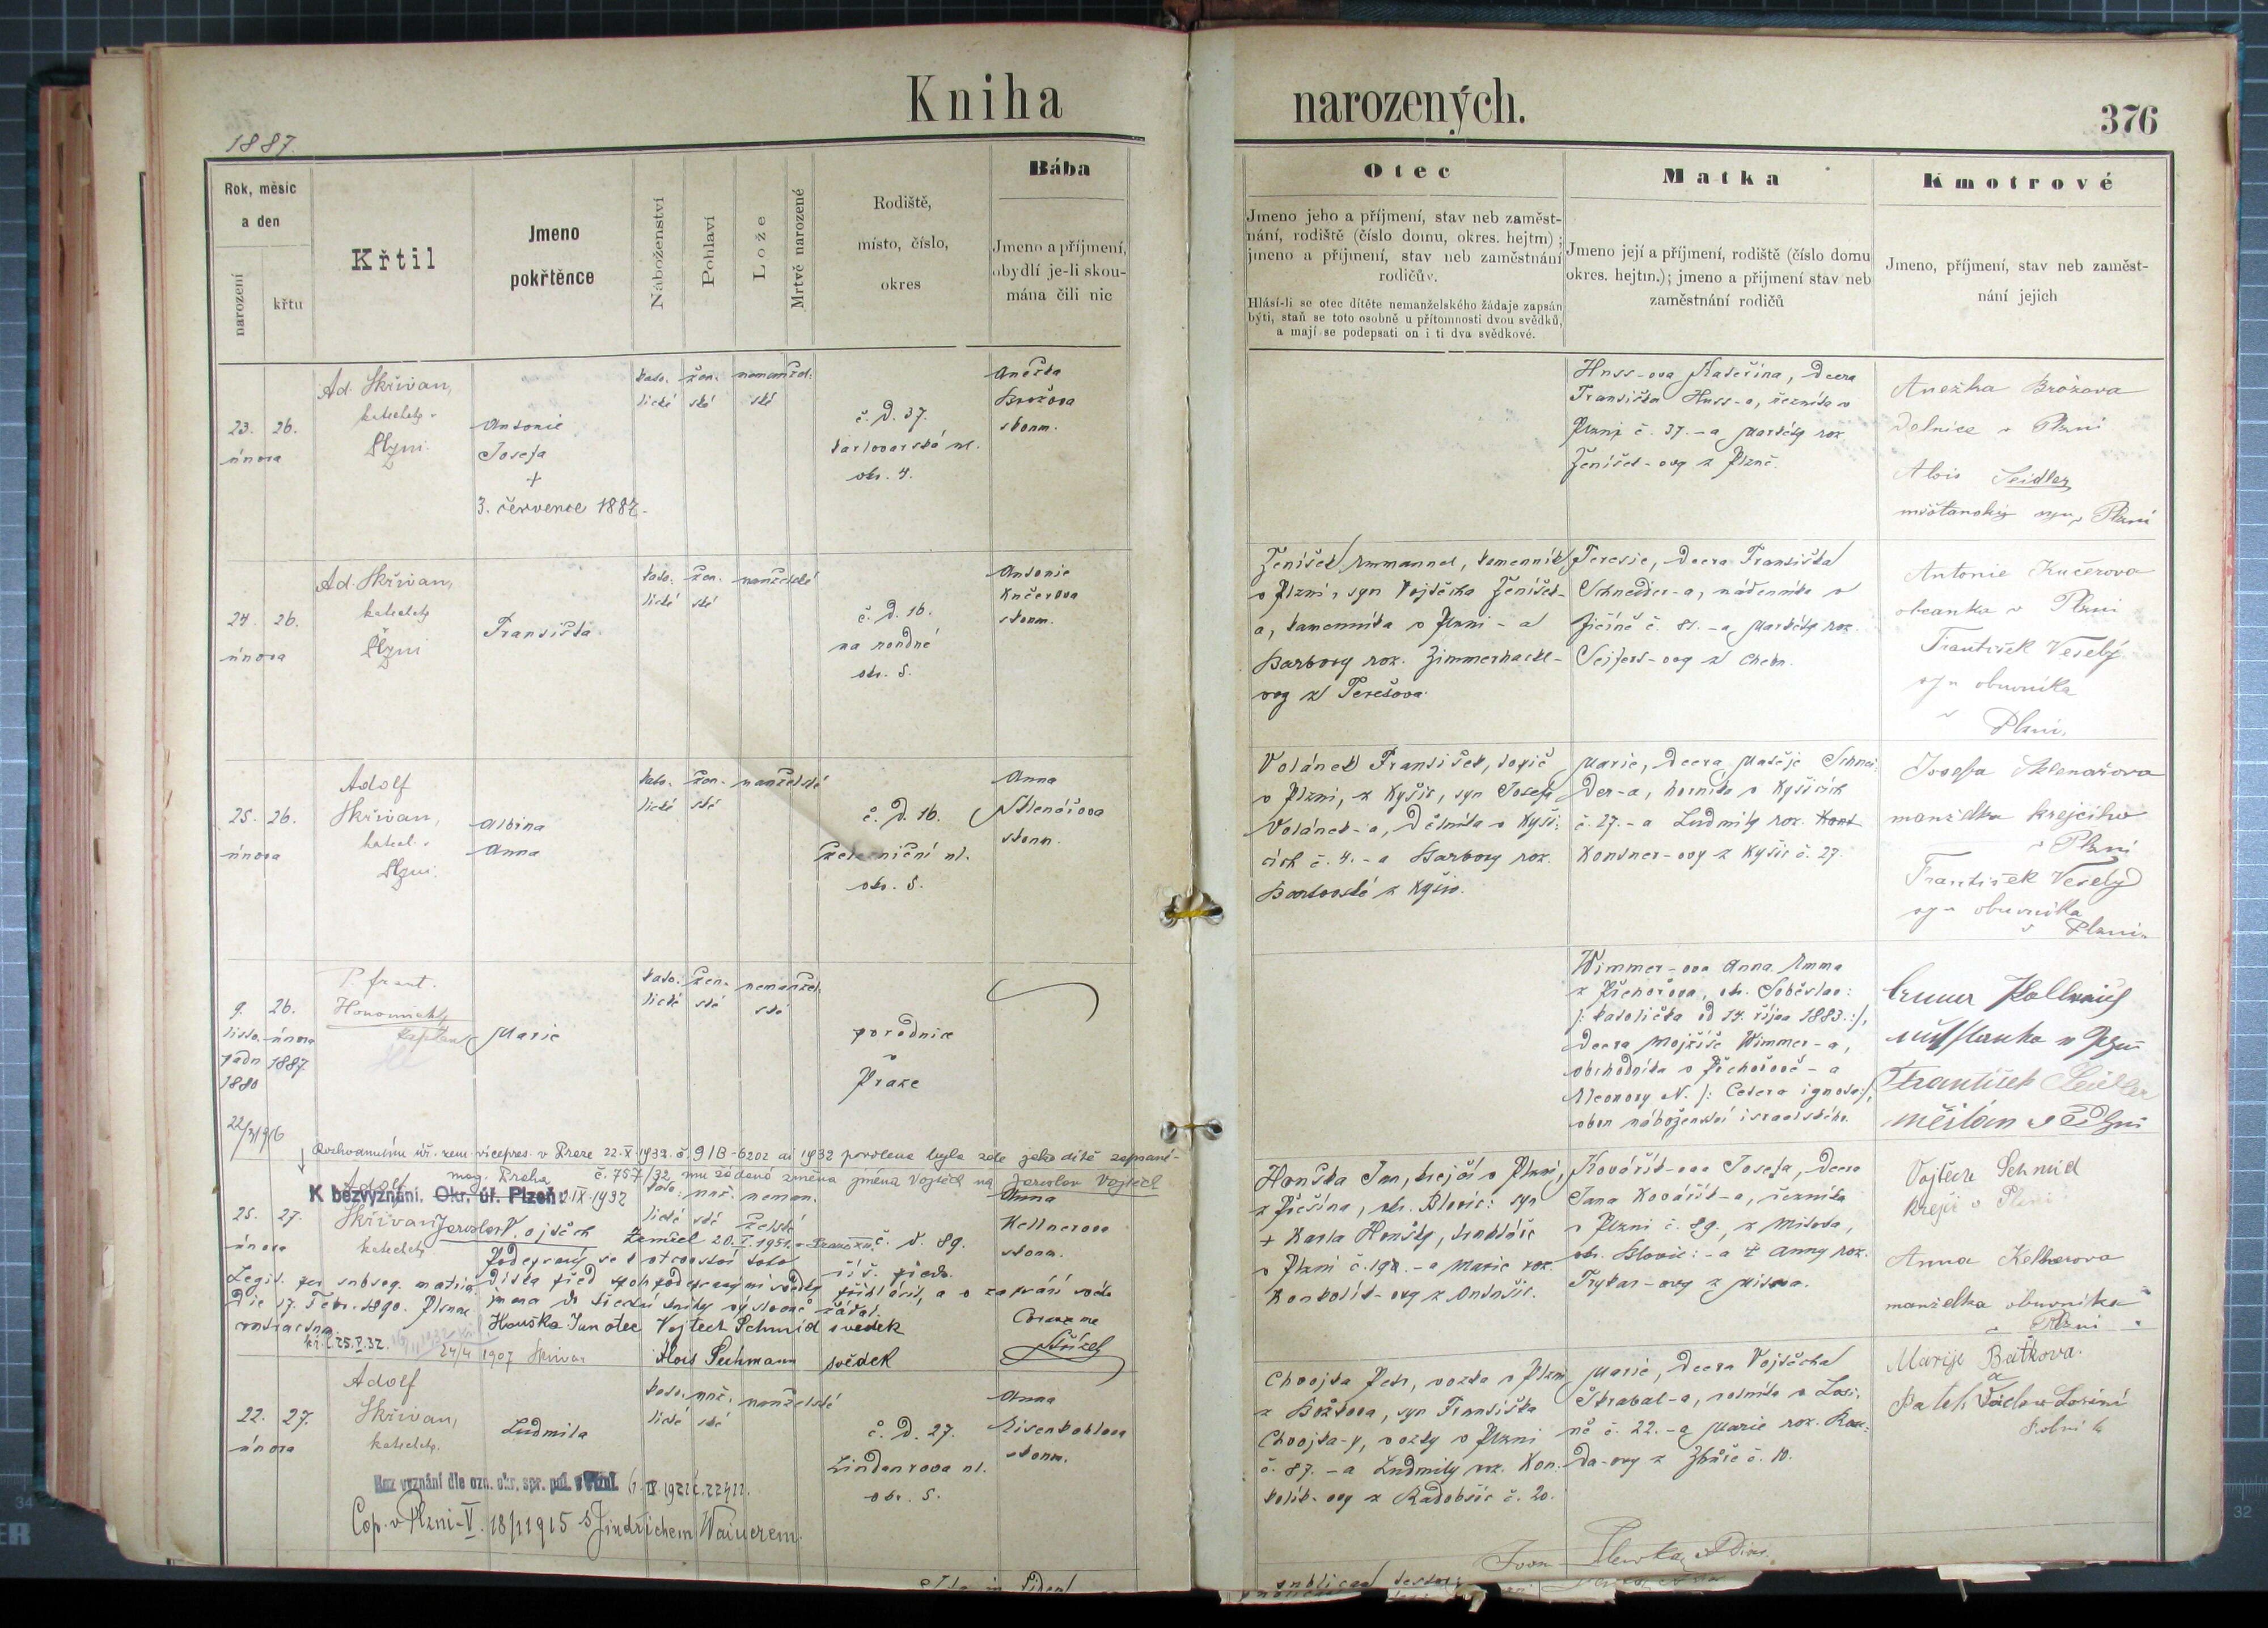 Kniha
narozených.
376
1887.
Rok, měsíc
a den
narození
křtu
Křtil
Jmeno
pokřtěnce
Náboženství
Pohlaví
Lože
Mrtvě narozené
Rodiště,
místo, číslo,
okres
Bába
Jmeno a příjmení,
obydlí je-li skou-
mána čili nic
Otec
Jmeno jeho a příjmení, stav neb zaměst-
nání, rodiště (číslo domu, okres. hejtm) ;
jmeno a příjmení, stav neb zaměstnání
rodičův.
Hlásí-li se otec dítěte nemanželského žádaje zapsán
býti, staň se toto osobně u přítomnosti dvou svědků,
a mají se podepsati on i ti dva svědkové.
Matka
Jmeno její a příjmení, rodiště (číslo domu
okres. hejtm.); jmeno a příjmení stav neb
zaměstnání rodičů
Kmotrové
Jmeno, příjmení, stav neb zaměst-
nání jejich
23. 26.
února
Ad. Skřivan,
katecheta v
Plzni.
Antonie
Josefa
+
3. července 1887.
kato- žen- nemanžel-
lické ské ské
č. d. 37.
karlovarská ul.
okr. 4.
Anežka
Brožova
skoum.
Huss-ova Kateřina, dcera
Františka Huss-a, řezníka v
Plzni č. 37. - a Markéty roz.
Ženíšek-ovy z Plzně.
Anežka Brožova
dělnice v Plzni
Alois Seidler
měšťanský syn v Plzni
24. 26.
února
Ad. Skřivan,
katecheta
Plzni
Františka
kato- žen- manželské
lické ské
č. d. 16.
na rondné
okr. 5.
Antonie
Kučerova
skoum.
Ženíšek Emmanuel, kamenník
v Plzni, syn Vojtěcha Ženíšek-
a, kamenníka v Plzni - a
Barbory roz. Zimmerhackl-
ovy z Terešova.
Terezie, dcera Františka
Schneider-a, nádenníka v
Jičíně č. 81. - a Markéty roz.
Seifert-ovy z Chebu.
Antonie Kučerova
občanka v Plzni
František Veselý
syn obuvníka
v Plzni.
25. 26.
února
Adolf
Skřivan,
katech. v
Plzni.
Albina
Anna
kato- žen- manželské
lické ské
č. d. 16.
železniční ul.
okr. 5.
Anna
Sklenářova
skoum.
Volánek František, topič
v Plzni, z Kyšic, syn Josefa
Volánek-a, dělníka v Kyši-
cích č. 4. - a Barbory roz.
Bartovské z Kyšic.
Marie, dcera Matěje Schnei-
der-a, horníka v Kyšicích
č. 27. - a Ludmily roz. Kont
Kontner-ovy z Kyšic č. 27.
Josefa Sklenářova
manželka krejčího
v Plzni
František Veselý
syn obuvníka
v Plzni.
9. 26.
listo- února
padu 1887.
1880
P. frant.
kaplan
Marie
kato- žen- nemanžel-
lické ské ské
porodnice
v
Praze
Wimmer-ova Anna Emma
z Přehořova, okr. Soběslav:
/: katolička od 14. října 1883.:/,
dcera Mojžíše Wimmer-a,
obchodníka v Přehořově - a
Eleonory N. /: Cetera ignota:/,
obou náboženství israelského.
František Seidler
měšťan v Plzni
22/3 1916
Rozhodnutím úř. zem. vicepres. v Praze 22.X.1932. č. 91B-6202 ai 1932 povolena byla zde jako dítě zapsané-
mag. Praha č. 757/32 mu žádaná změna jména Vojtěch na Jaroslav Vojtěch
K bezvyznání. Okr. úř. Plzeň 2.IX.1932
25. 27.
února
Adolf
Skřivan
katecheta
Jaroslav Vojtěch
kato- muž- neman-
lické ské želské
Zemřel 20.I.1951 v Praze XII.
č. d. 89.
Anna
Kellnerova
skoum.
Podepsaný se k otcovství toho
dítka před spolupodepsanými svědky přihlásil, a o zapsání svého
jmena do křestní knihy výslovně žádal.
Legit. per subseq. matrim.
die 17. Febr. 1890. Plznae
contractum.
Houška Jan otec Vojtech Schmid svedek
Coram me
kř. l. 25.V.32.
24/4 1907 Skřivan
Alois Pechmann svědek
Houška Jan, krejčí v Plzni,
z Přešína, okr. Blovic: syn
+ Karla Houšky, truhláře
v Plzni č. 192. - a Marie roz.
Konkolík-ovy z Ondušic.
Kovářík-ova Josefa, dcera
Jana Kovářík-a, řezníka
v Plzni č. 89., z Mítova,
okr. Blovic: - a + Anny roz.
Trykar-ovy z Mítova.
Vojtěch Schmid
krejčí v Plzni
Anna Kellnerova
manželka obuvníka
v Plzni
22. 27.
února
Adolf
Skřivan,
katecheta.
Ludmila
kato- muž- manželské
lické ské
č. d. 27.
Lindaurova ul.
okr. 5.
Anna
Eisenkohlova
skoum.
Chvojka Petr, vozka v Plzni
z Božkova, syn Františka
Chvojka-y, vozky v Plzni
č. 87. - a Ludmily roz. Kon-
kolík-ovy z Radobčic č. 20.
Marie, dcera Vojtěcha
Škrabal-a, rolníka v Losi-
né č. 22. - a Marie roz. Rou-
da-ovy z Zbůče č. 10.
Marije Batkova.
a
Batek Václav
Bez vyznání dle ozn. okr. spr. pol. v Plzni. 6. IX 1921 č. 22411.
Cop. v Plzni-V. 18/1 1915 s Jindřichem Wainerem.